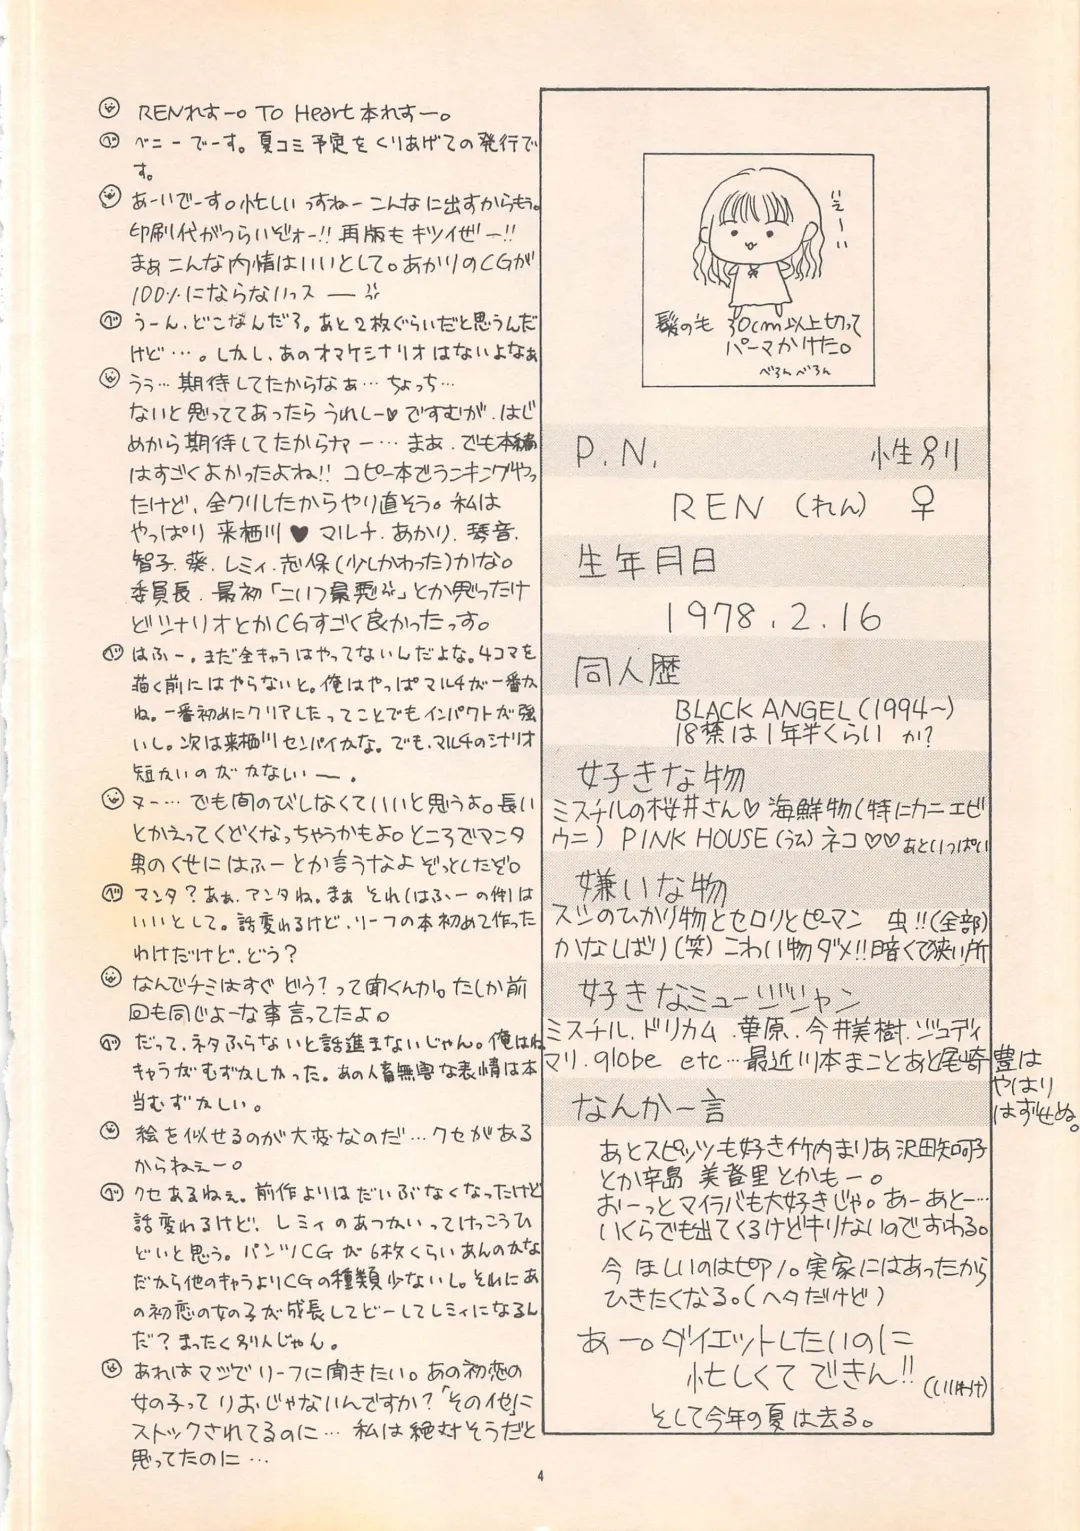 RENれすー。To Heart本れすー。
べ ベニーでーす。夏コミ予定をくりあげての発行で
す。
あーいでーす。忙しいっすねーこんなに出すからもぅ。
印刷代がつらいぞォー!! 再版もキツイぜー!!
まぁこんな内情はいいとして。あかりのCGが
100%にならないっスー
べ うーん、どこなんだろ。あと2枚ぐらいだと思うんだ
けど…。しかし、あのオマケシナリオはないよなぁ
うぅ…期待してたからなぁ…ちょっち…
ないと思っててあったらうれしー♥ですむが、はじ
めから期待してたからナァー…まぁ、でも本編
はすごくよかったよね!! コピー本でランキングやっ
たけど、全クリしたからやり直そう。私は
やっぱり 来栖川♥マルチ、あかり、琴音、
智子、葵、レミィ、志保(少しかわった)かな。
委員長、最初「こいつ最悪」とか思ったけ
どシナリオとかCGすごく良かったっす。
べ はふー。まだ全キャラはやってないんだよな。4コマを
描く前にはやらないと。俺はやっぱマルチが一番か
ね。一番初めにクリアしたってことでもインパクトが強
いし。次は来栖川センパイかな。でも、マルチのシナリオ
短かいのがかないー。
ヌー…でも間のびしなくていいと思うよ。長い
とかえってくどくなっちゃうかもよ。ところでマンタ
男のくせにはふーとか言うなよ ぞっとしたぞ。
べ マンタ?あぁ、アンタね。まぁ それ(はふーの件)は
いいとして。話変わるけど、リーフの本初めて作った
わけだけど、どう?
なんでチミはすぐ どう?って聞くんか。たしか前
回も同じよーな事言ってたよ。
べ だって、ネタふらないと話進まないじゃん。俺はね
キャラがむずかしかった。あの人畜無害な表情は本
当むずかしい。
絵を似せるのが大変なのだ…クセがある
からねぇー。
べ クセあるねぇ。前作よりはだいぶなくなったけど
話変わるけど、レミィのあつかいってけっこうひ
どいと思う。パンツCGが6枚くらいあんのかな
だから他のキャラよりCGの種類少ないし。それにあ
の初恋の女の子が成長してどーしてレミィになるん
だ?まったく別人じゃん。
あれはマジでリーフに聞きたい。あの初恋の
女の子ってりおじゃないんですか?「その他」に
ストックされてるのに…私は絶対そうだと
思ってたのに…
いぇーい
髪のも 30cm以上切って
パーマかけた。
べろんべろん
P.N. 性別
REN (れん) ♀
生年月日
1978.2.16
同人歴
BLACK ANGEL(1994〜)
18禁は1年半くらい か?
好きな物
ミスチルの桜井さん♡ 海鮮物(特にカニエビ
ウニ) PINK HOUSE(うふ)ネコ♡♡あといっぱい
嫌いな物
スシのひかり物とセロリとピーマン 虫!!(全部)
かなしばり(笑) こわい物ダメ!!暗くて狭い所
好きなミュージジャン
ミスチル、ドリカム、華原、今井美樹、ジュディ
マリ、globe etc…最近川本まこと あと尾崎豊は
やはり
はずせぬ。
なんか一言
あとスピッツも好き 竹内まりあ 沢田知可子
とか辛島 美登里とかもー。
おーっとマイラバも大好きじゃ。あーあとー…
いくらでも出てくるけどキリないのですわる。
今 ほしいのはピアノ。実家にはあったから
ひきたくなる。(ヘタだけど)
あー。ダイエットしたいのに
忙しくて できん!!
(いいわけ)
そして今年の夏は去る。
4